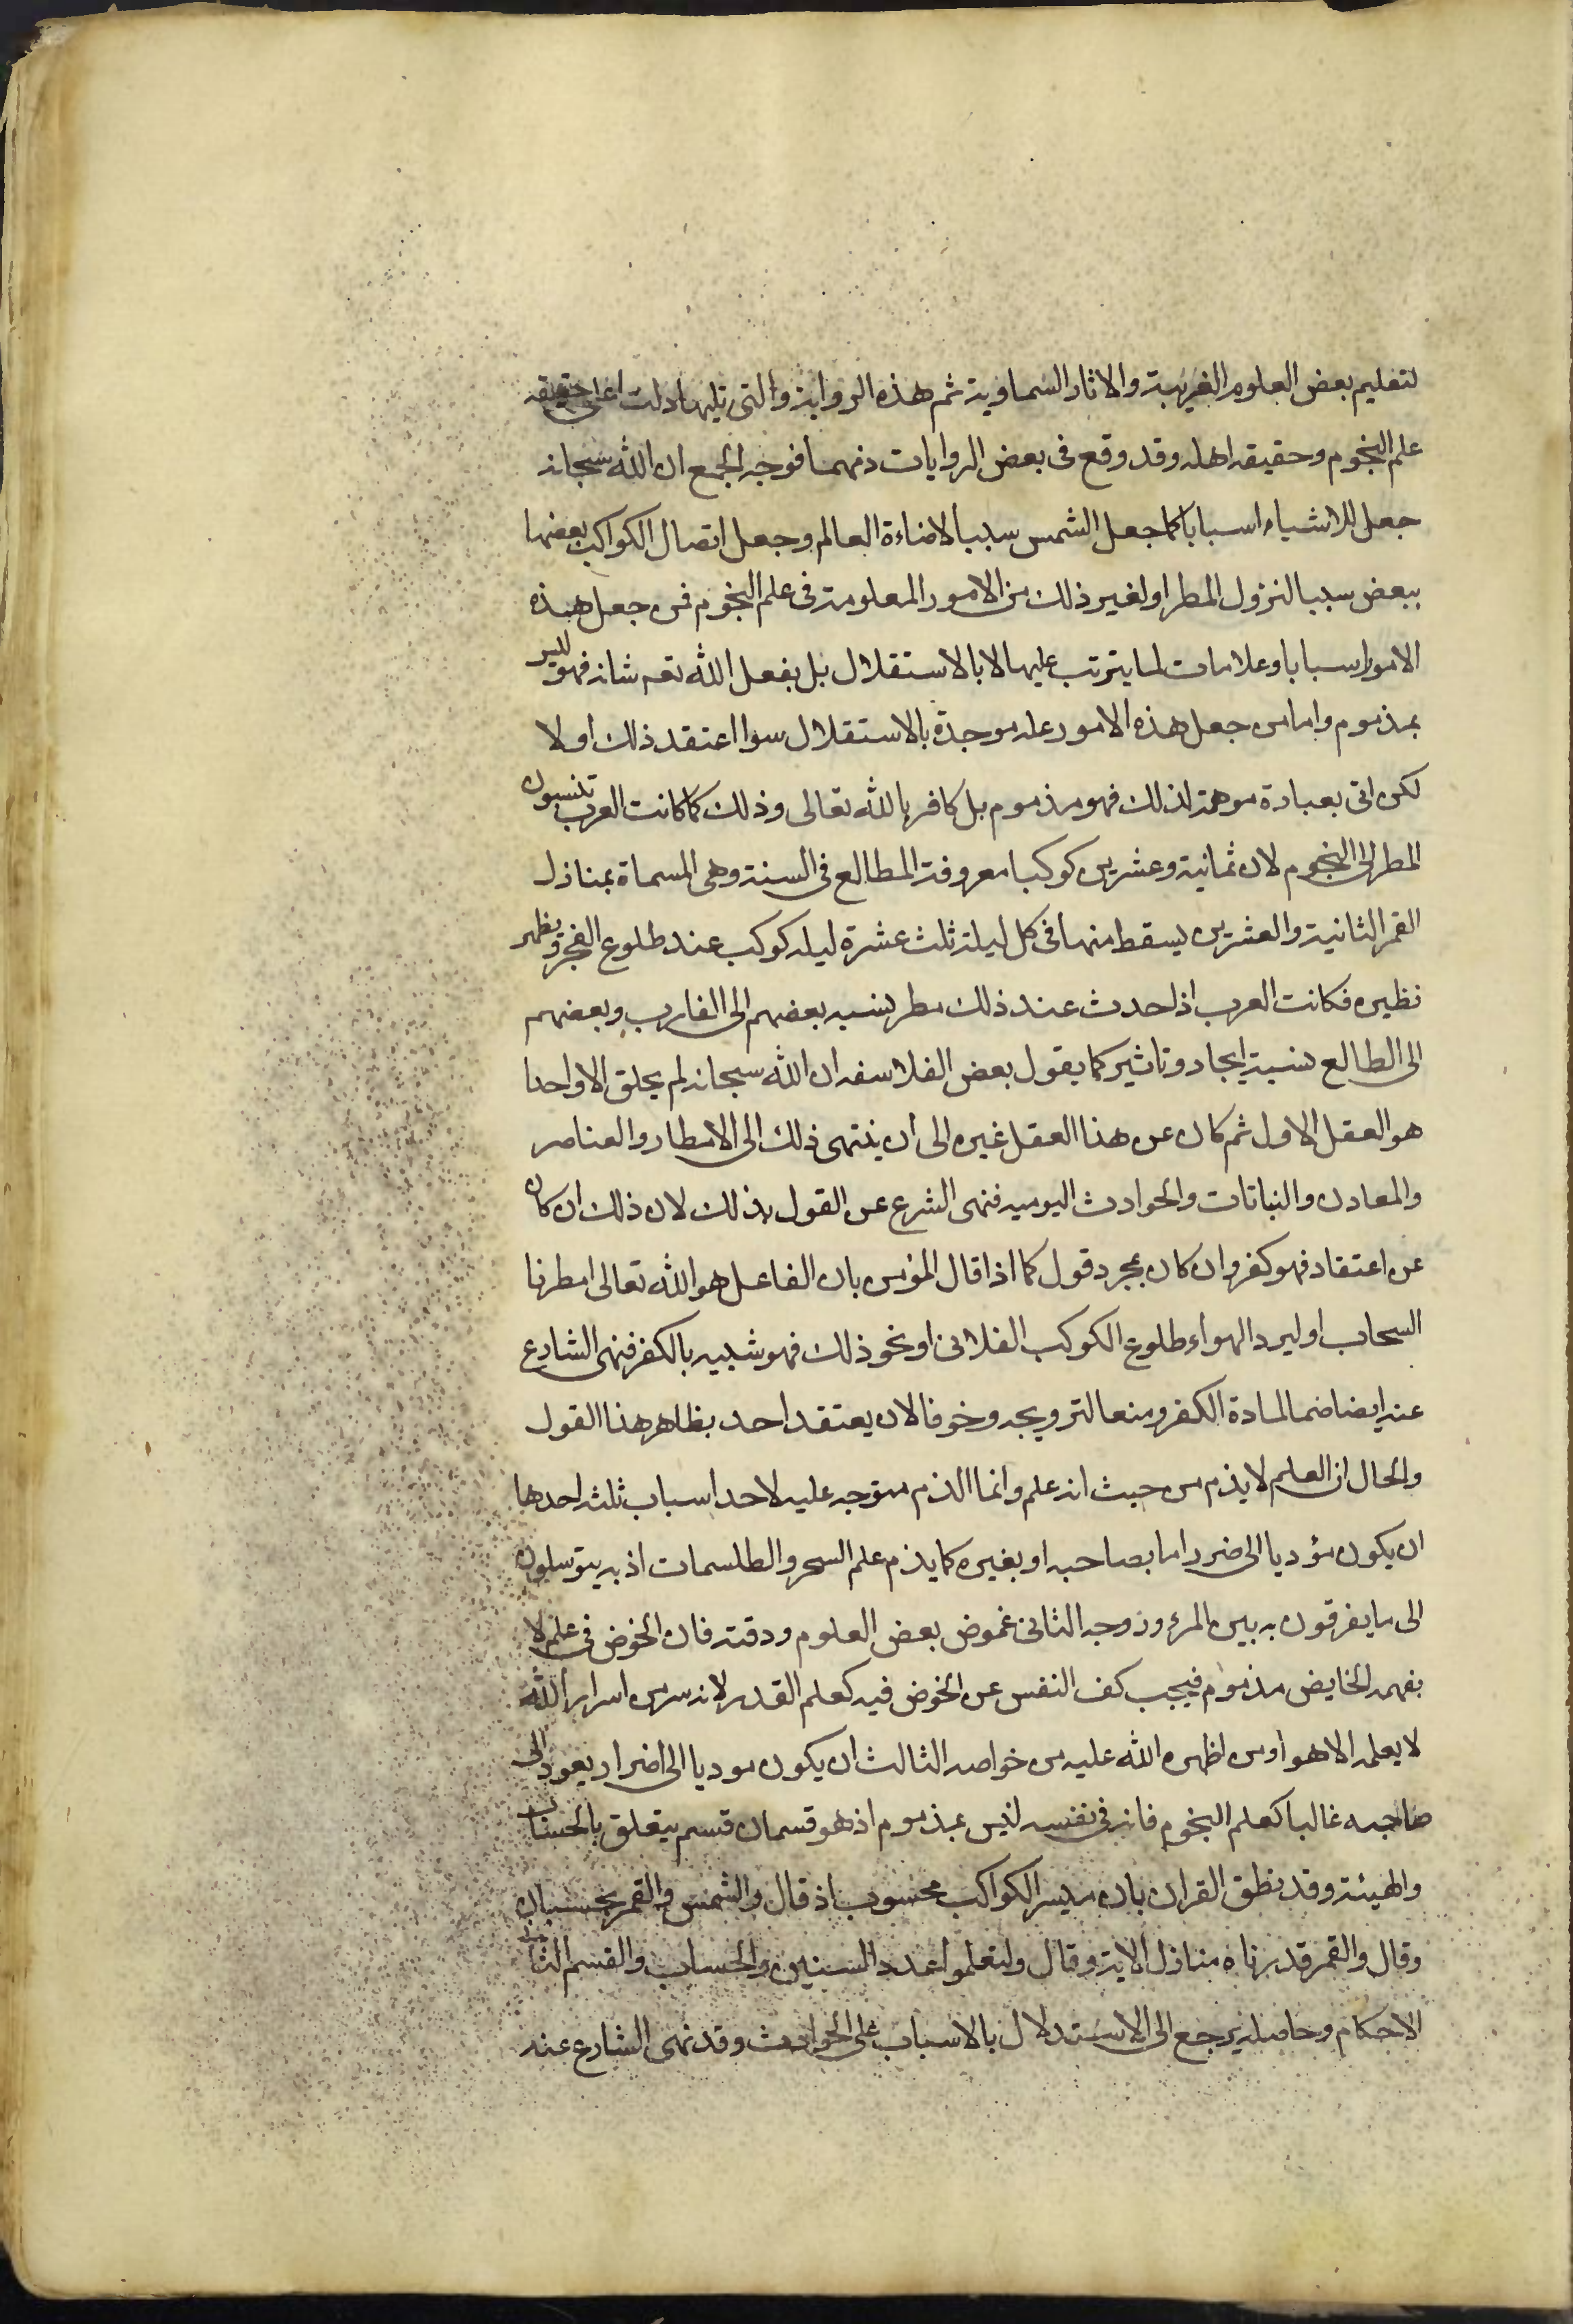 لتعليم بعض العلوم الغريبة والاثار السماوية ثم هذه الرواية والتى تليها دلت على حقيقه
علم النجوم وحقيقه اهله وقد وقع فى بعض الروايات ذمهما فوجه الجمع ان الله سبحانه
جعل للاشياء اسبابا كما جعل الشمس سببا لاضاءة العالم وجعل اتصال الكواكب بعضها
ببعض سببا لنزول المطر او لغير ذلك من الامور المعلومة فى علم النجوم فمن جعل هذه
الامور اسبابا وعلامات لما يترتب عليها لا بالاستقلال بل بفعل الله تعه شانه فهو ليس
بمذموم واما من جعل هذه الامور علة موجدة بالاستقلال سوا اعتقد ذلك او لا
لكن اتى بعبارة موهمة لذلك فهو مذموم بل كافر بالله تعالى وذلك كما كانت العرب تنسبون
المطر الى النجوم لان ثمانية وعشرين كوكبا معروفة المطالع فى السنة وهى المسماة بمنازل
القمر الثانية والعشرين يسقط منها فى كل ليلة ثلث عشرة ليله كوكب عند طلوع الفجر ويظهر
نظيره فكانت العرب اذا حدث عند ذلك مطر ينسبه بعضهم الى الغارب وبعضهم
الى الطالع نسبة ايجاد وتاثير كما يقول بعض الفلاسفه ان الله سبحانه لم يخلق الا واحدا
هو العقل الاول ثم كان عن هذا العقل غيره الى ان ينتهى ذلك الى الامطار والعناصر
والمعادن والنباتات والحوادث اليوميه فنهى الشرع عن القول بذلك لان ذلك ان كان
عن اعتقاد فهو كفر وان كان بمجرد قول كما اذا قال المؤمن بان الفاعل هو الله تعالى امطرنا
السحاب او لبرد الهواء طلوع الكوكب الفلانى او نحو ذلك فهو شبيه بالكفر فنهى الشارع
عنه ايضا ضما لمادة الكفر ومنعا لترويجه وخوفا لان يعتقد احد بظاهر هذا القول
والحال ان العلم لا يذم من حيث انه علم وانما الذم متوجه عليه لاحد اسباب ثلثه احدها
ان يكون مؤديا الى ضرر اما بصاحبه او بغيره كما يذم علم السحر والطلسمات اذ به يتوسلون
الى ما يفرقون به بين المرء وزوجه الثانى غموض بعض العلوم ودقته فان الخوض فى علم لا
يفهمه الخايض مذموم فيجب كف النفس عن الخوض فيه كعلم القدر لانه سر من اسرار الله
لا يعلمه الا هو او من اظهره الله عليه من خواصه الثالث ان يكون موديا الى اضرار يعود الى
صاحبه غالبا كعلم النجوم فانه فى نفسه ليس بمذموم اذ هو قسمان قسم يتعلق بالحساب
والهيئة وقد نطق القران بان مسير الكواكب محسوب اذ قال والشمس والقمر بحسبان
وقال والقمر قدرناه منازل الاية وقال ولتعلموا عدد السنين والحساب والقسم الثانى
الاحكام وحاصله يرجع الى الاستدلال بالاسباب على الحوادث وقد نهى الشارع عنه